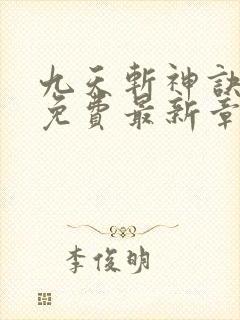 九天斬神訣
免費最新章
李俊明